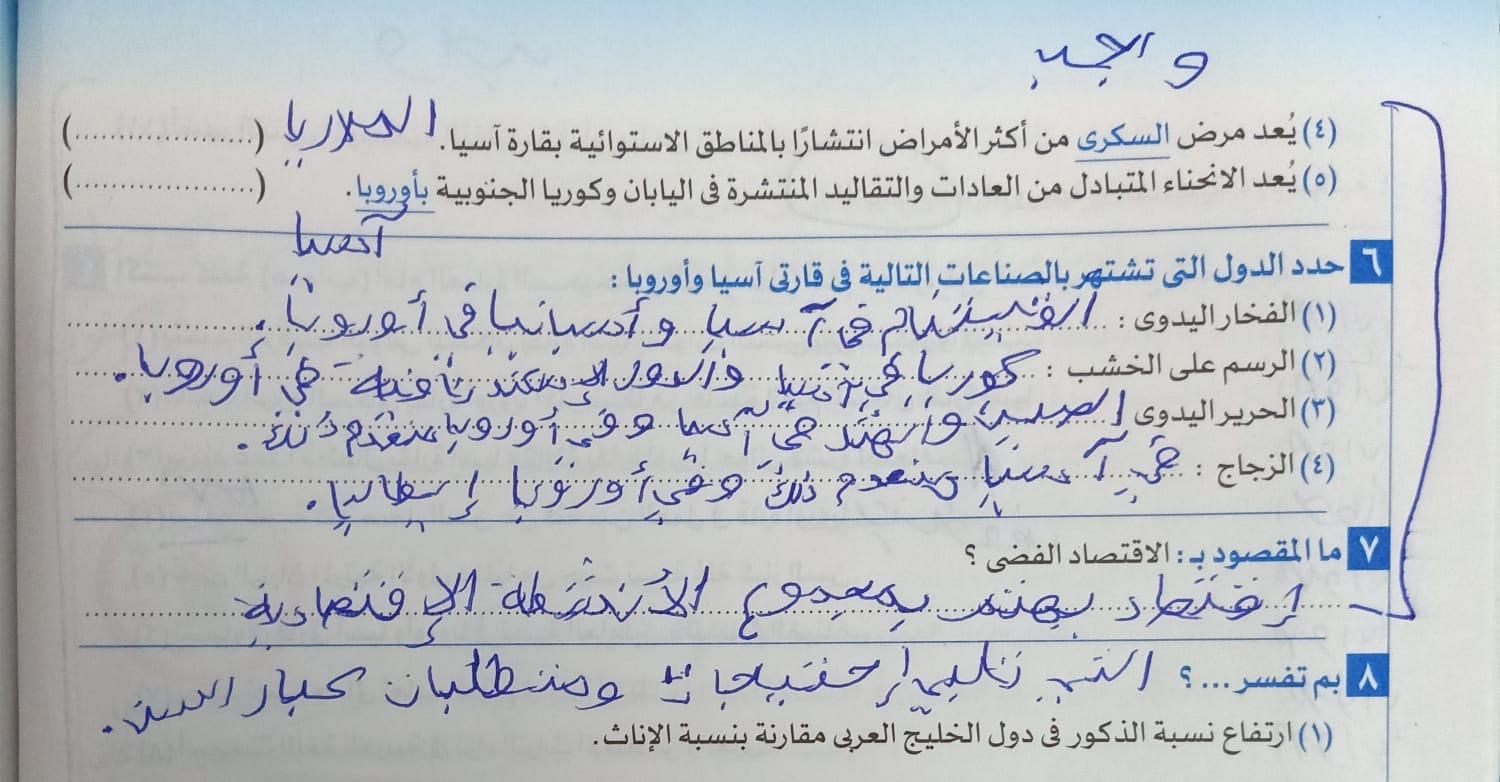 واجب
(٤) يُعد مرض السكرى من أكثر الأمراض انتشارًا بالمناطق الاستوائية بقارة آسيا. الملاريا (....................)
(٥) يُعد الانحناء المتبادل من العادات والتقاليد المنتشرة فى اليابان وكوريا الجنوبية بأوروبا. (....................)
آسيا
٦ حدد الدول التى تشتهر بالصناعات التالية فى قارتى آسيا وأوروبا :
(١) الفخار اليدوى : الفيتنام في آسيا وأسبانيا في أوروبا.
(٢) الرسم على الخشب : كوريا في آسيا والدول الإسكندنافية في أوروبا.
(٣) الحرير اليدوى الصين والهند في آسيا وفي أوروبا ينعدم ذلك.
(٤) الزجاج : في آسيا ينعدم ذلك وفي أوروبا إيطاليا.
٧ ما المقصود بـ : الاقتصاد الفضى ؟
إقتصاد يهتم بمجموع الأنشطة الإقتصادية
التي تلبي إحتياجات ومتطلبات كبار السن.
٨ بم تفسر ... ؟
(١) ارتفاع نسبة الذكور فى دول الخليج العربى مقارنة بنسبة الإناث.